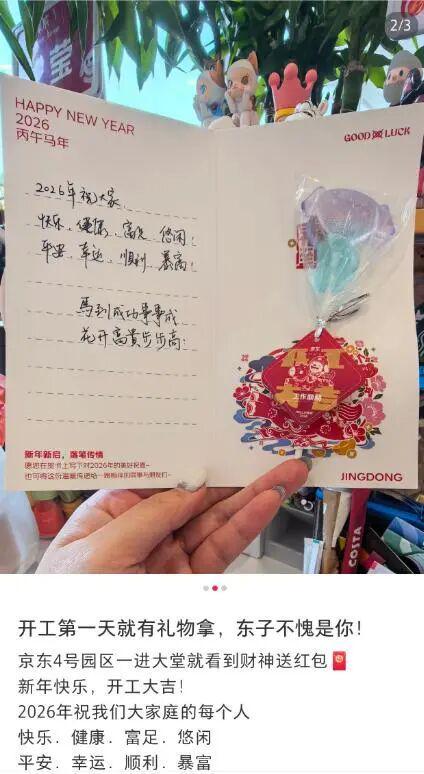 2/3
HAPPY NEW YEAR
2026
丙午马年
GOOD LUCK
2026年祝大家
快乐、健康、富足、悠闲!
平安、幸运、顺利、暴富!
馬到成功事事成
花开富貴步步高!
开工
大吉
新年新启,落笔传情
JINGDONG
COSTA
开工第一天就有礼物拿,东子不愧是你!
京东4号园区一进大堂就看到财神送红包🧧
新年快乐,开工大吉!
2026年祝我们大家庭的每个人
快乐.健康.富足.悠闲
平安.幸运.顺利.暴富